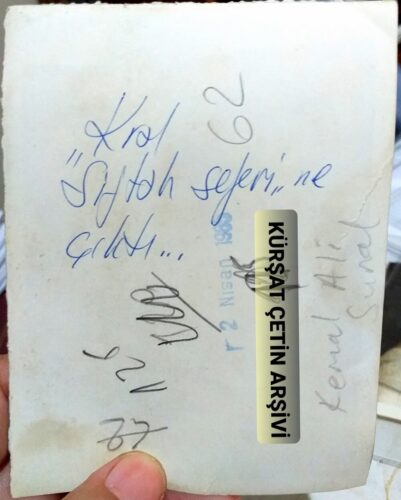 „Kral
Siftah seferi„ ne
çıktı...
62
12 Nisan 1985
KÜRŞAT ÇETİN ARŞİVİ
Kemal Ali
Sunal
125